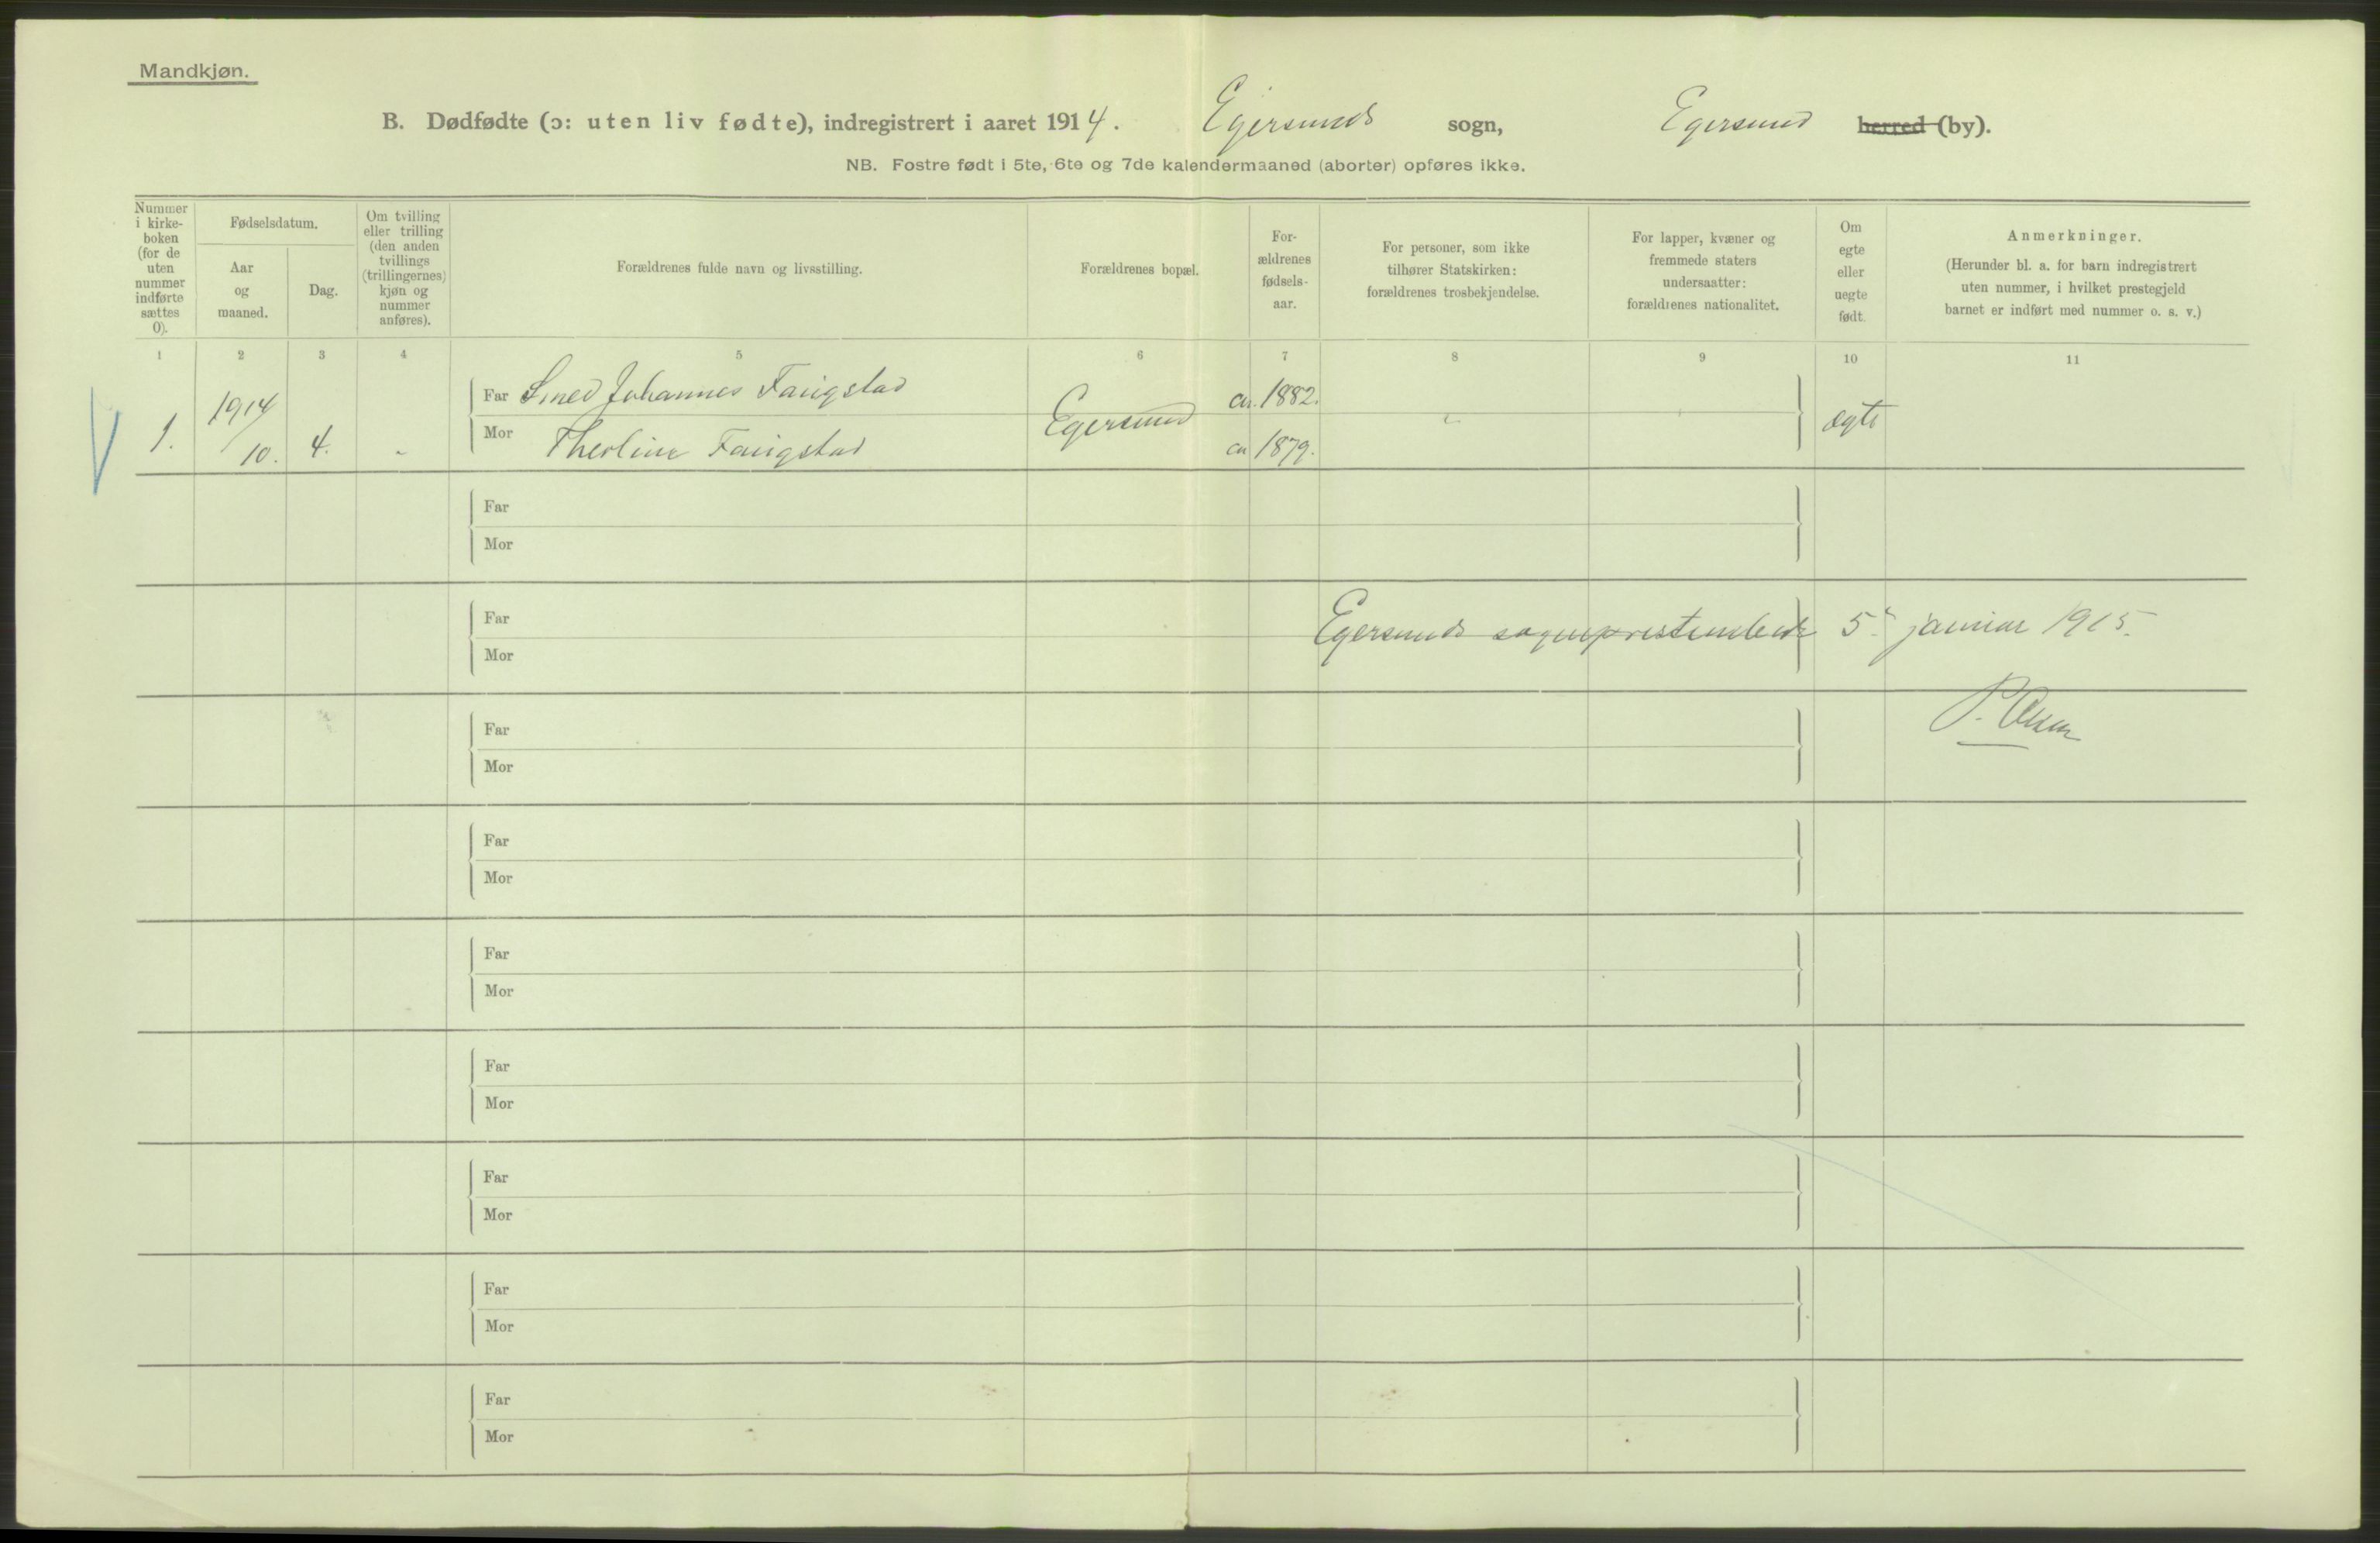 Mandkjøn.
B. Dødfødte (ɔ: uten liv fødte), indregistrert i aaret 1914. Egersunds sogn, Egersund herred (by).
NB. Fostre født i 5te, 6te og 7de kalendermaaned (aborter) opføres ikke.
Nummer
i kirke-
boken
(for de
uten
nummer
indførte
sættes
0).
Fødselsdatum.
Aar
og
maaned.
Dag.
Om tvilling
eller trilling
(den anden
tvillings
(trillingernes)
kjøn og
nummer
anføres).
Forældrenes fulde navn og livsstilling.
Forældrenes bopæl.
For-
ældrenes
fødsels-
aar.
For personer, som ikke
tilhører Statskirken:
forældrenes trosbekjendelse.
For lapper, kvæner og
fremmede staters
undersaatter:
forældrenes nationalitet.
Om
egte
eller
uegte
født.
Anmerkninger.
(Herunder bl. a. for barn indregistrert
uten nummer, i hvilket prestegjeld
barnet er indført med nummer o. s. v.)
1 2 3 4 5 6 7 8 9 10 11
Far Smed Johannes Faugstad ca. 1882.
1. 1914/10. 4. - Egersund egte
Mor Faugstad ca 1879.
Far
Mor
Far
Egersunds sogneprestembede 5. januar 1915.
Mor
P. Olsen
Far
Mor
Far
Mor
Far
Mor
Far
Mor
Far
Mor
Far
Mor
Far
Mor